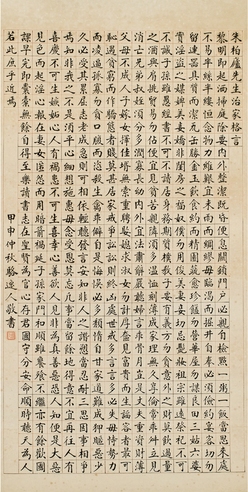 朱柏廬先生治家格言
黎明即起洒掃庭除要內外整潔既昏便息關鎖門戶必親自檢點一粥一飯當思來處
不易半絲半縷恆念物力維艱宜未雨而綢繆毋臨渴而掘井自奉必須儉約宴客切勿
留連器具質而潔瓦缶勝金玉飲食約而精園蔬愈珍饈勿營華屋勿謀良田三姑六婆
實淫盜之媒婢美妾嬌非閨房之福奴僕勿用俊美妻妾切忌艷妝祖宗雖遠祭祀不可
不誠子孫雖愚經書不可不讀居身務期質樸教子要有義方勿貪意外之財莫飲過量
之酒與肩挑貿易勿佔便宜見貧苦親鄰須多溫恤刻薄成家理無久享倫常乖舛立見
消亡兄弟叔姪須分多潤寡長幼內外宜法肅辭嚴聽婦言乖骨肉豈是丈夫重資財薄
父母不成人子嫁女擇佳壻毋索重聘娶媳求淑女勿計厚奩見富貴而生諂容者最可
恥遇貧窮而作驕態者賤莫甚居家戒爭訟訟則終凶處世戒多言言多必失毋恃勢力
而凌逼孤寡勿貪口腹而恣殺生禽乖僻自是悔悞必多頹惰自甘家道難成狎暱惡少
久必受其累屈志老成急則可相依輕聽發言安知非人之譖愬當忍耐三思因事相爭
焉知非我之不是須平心暗想施惠毋念受恩莫忘凡事當留餘地得意不宜再往人有
喜慶不可生妒忌心人有禍患不可生喜幸心善欲人見不是真善惡恐人知便是大惡
見色而起淫心報在妻女匿怨而用暗箭禍延子孫家門和順雖饔飧不繼亦有餘歡國
課早完即囊橐無餘自得至樂讀書志在聖賢為官心存君國守分安命順時聽天為人
若此庶乎近焉
甲申仲秋 人敬書